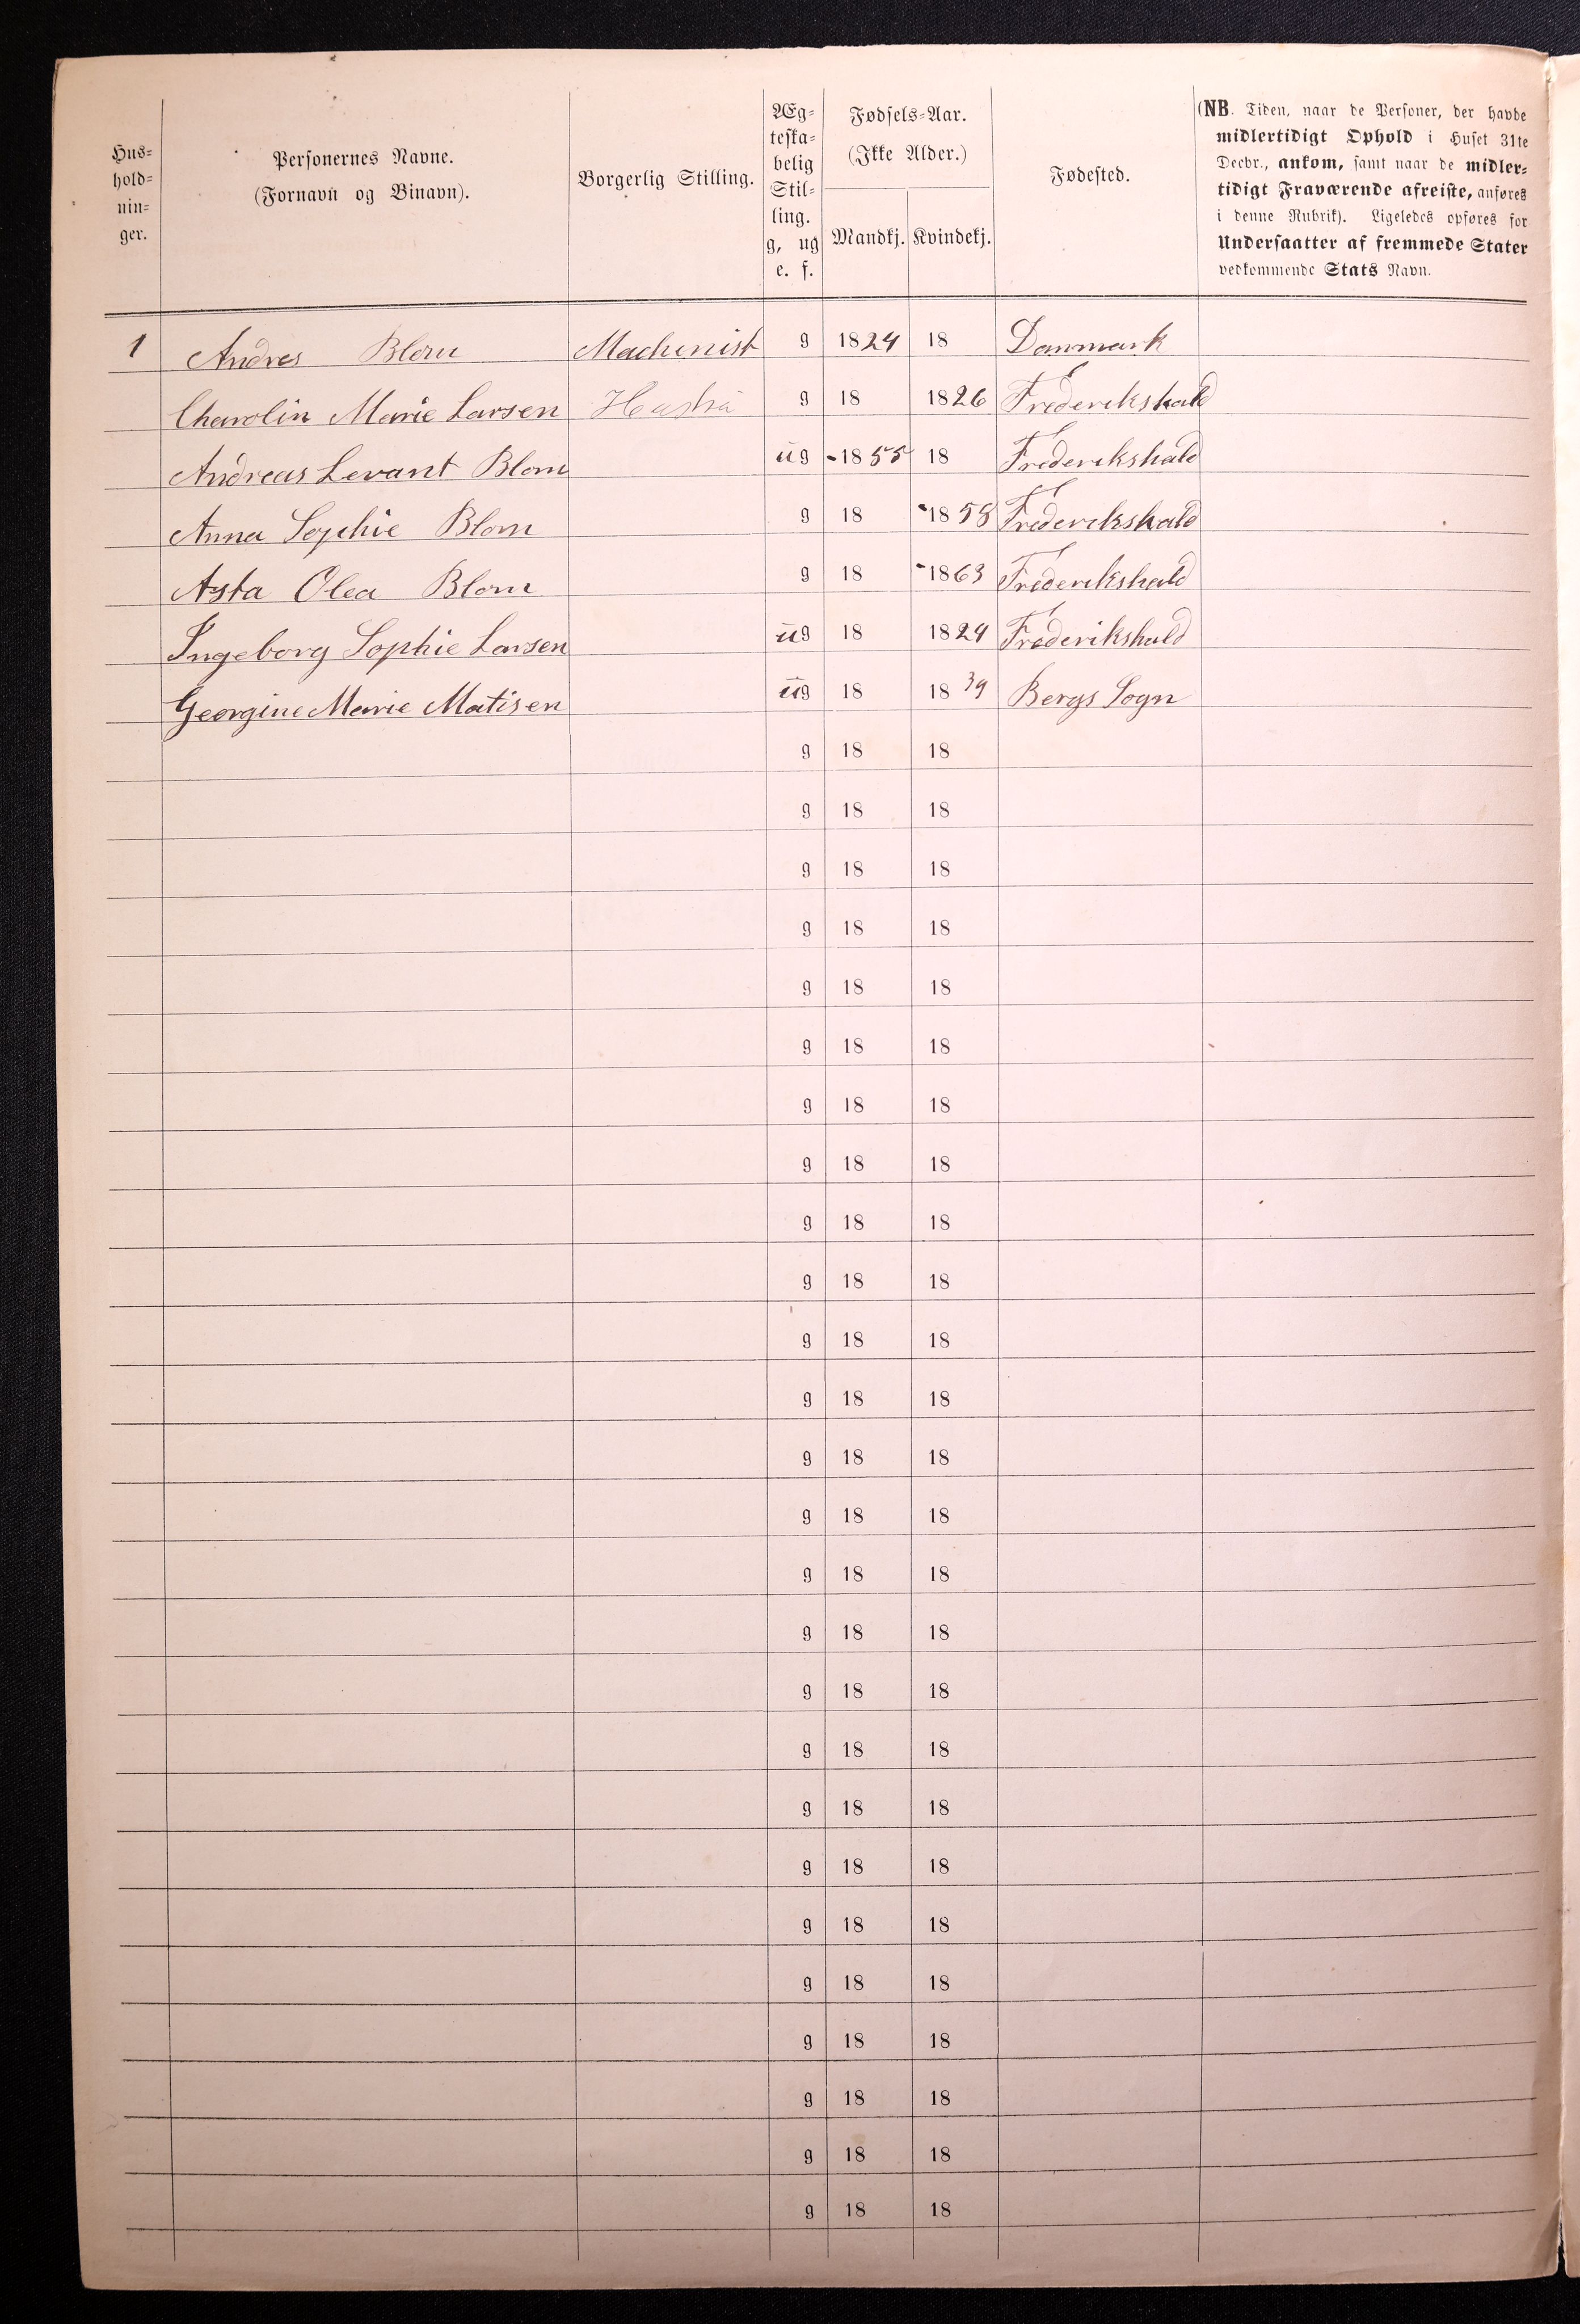 Hus-
hold-
nin-
ger.
Personernes Navne.
(Fornavn og Binavn).
Borgerlig Stilling.
Æg-
teska-
belig
Stil-
ling.
g, ug
e. f.
Fødsels-Aar.
(Ikke Alder.)
Mandkj. Kvindekj.
Fødested.
(NB. Tiden, naar de Personer, der havde
midlertidigt Ophold i Huset 31te
Decbr., ankom, samt naar de midler-
tidigt Fraværende afreiste, anføres
i denne Rubrik). Ligeledes opføres for
Undersaatter af fremmede Stater
vedkommende Stats Navn.
1 Andres Blom Machenist g 1824 18 Danmark
Charolin Marie Larsen g 18 1826 Frederikshald
Andreas Levant Blom ug 1855 18 Frederikshald
Anna Sophie Blom g 18 1858 Frederikshald
Asta Olea Blom g 18 1863 Frederikshald
Ingeborg Sophie Larsen ug 18 1824 Frederikshald
Georgine Marie Matisen ug 18 1839 Bergs Sogn
g 18 18
g 18 18
g 18 18
g 18 18
g 18 18
g 18 18
g 18 18
g 18 18
g 18 18
g 18 18
g 18 18
g 18 18
g 18 18
g 18 18
g 18 18
g 18 18
g 18 18
g 18 18
g 18 18
g 18 18
g 18 18
g 18 18
g 18 18
g 18 18
g 18 18
g 18 18